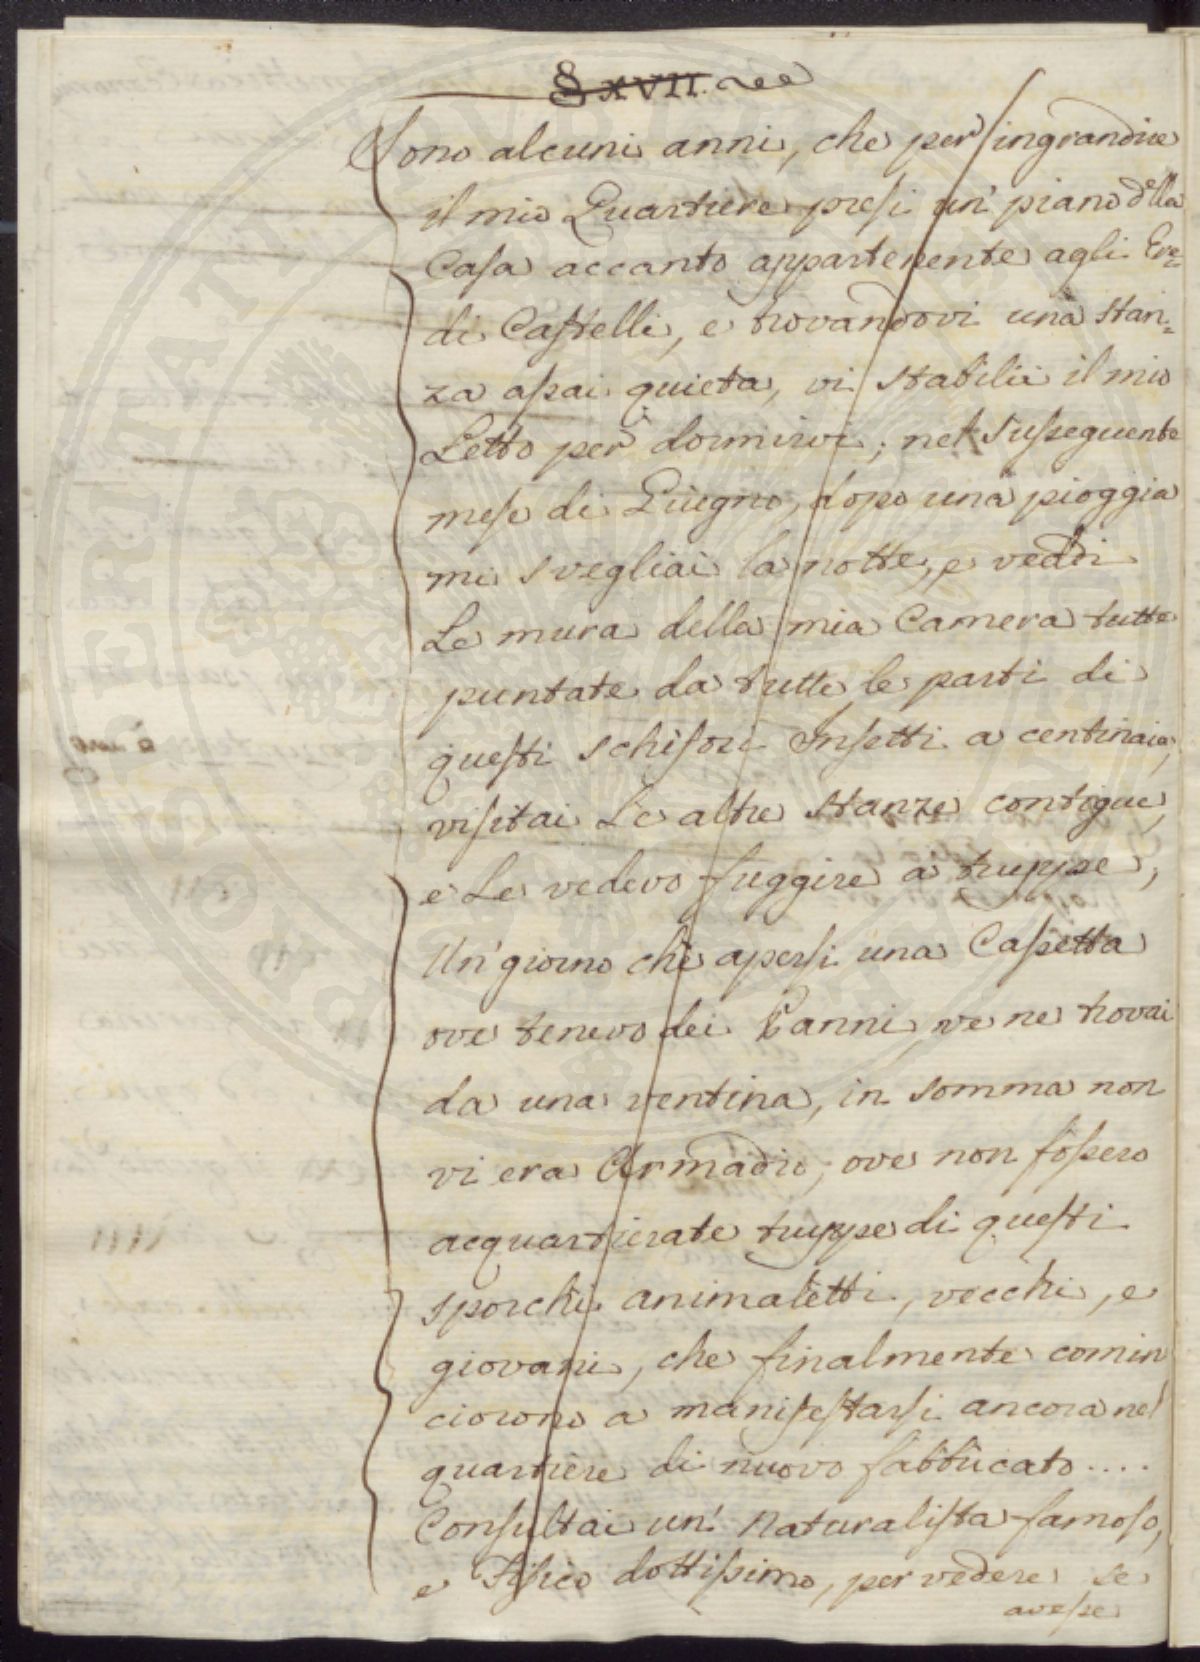 § XVII.
Sono alcuni anni, che per ingrandire
il mio Quartiere presi un' piano della
Casa accanto appartenente agli Ere=
di Castelli, e trovandovi una stan=
za assai quieta, vi stabilii il mio
Letto per dormirvi; nel Susseguente
mese di Giugno, dopo una pioggia
mi svegliai la notte, e veddi
Le mura della mia Camera tutte
puntate da tutte le parti di
questi schifosi Insetti a centinaia,
visitai Le altre stanze contigue,
e Le vedevo fuggire a truppe,
Un' giorno che apersi una Cassetta
ove tenevo dei Panni, ve ne trovai
da una ventina, in somma non
vi era Armadio, ove non fossero
acquartierate truppe di questi
sporchi animaletti, vecchi, e
giovani, che finalmente comin
ciorono a manifestarsi ancora nel
quartiere di nuovo fabbricato....
Consultai un' Naturalista famoso,
e Fisico dottissimo, per vedere se
avesse
PROSPERITATI PUBLICAE